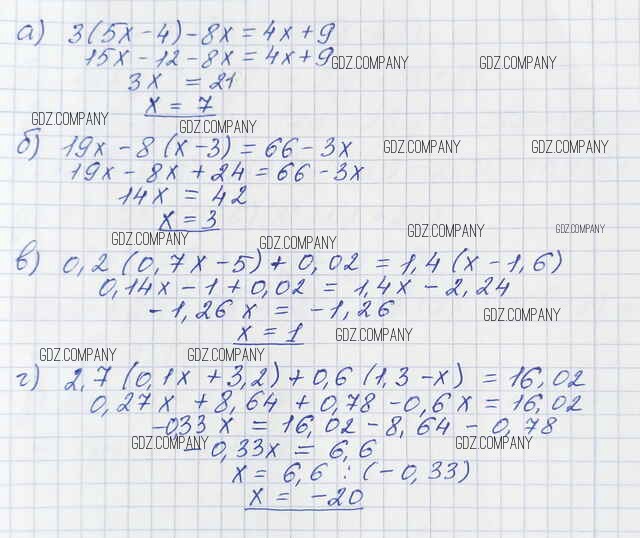 а) 3(5x-4)-8x = 4x+9
15x-12-8x = 4x+9
GDZ.COMPANY GDZ.COMPANY
3x = 21
x = 7
GDZ.COMPANY GDZ.COMPANY
б) 19x-8(x-3) = 66-3x
GDZ.COMPANY GDZ.COMPANY
19x-8x+24 = 66-3x
14x = 42
x = 3
GDZ.COMPANY GDZ.COMPANY GDZ.COMPANY GDZ.COMPANY
в) 0,2(0,7x-5)+0,02 = 1,4(x-1,6)
0,14x-1+0,02 = 1,4x-2,24
-1,26x = -1,26
GDZ.COMPANY
x = 1
GDZ.COMPANY
GDZ.COMPANY GDZ.COMPANY
г) 2,7(0,1x+3,2)+0,6(1,3-x) = 16,02
0,27x+8,64+0,78-0,6x = 16,02
-033x = 16,02-8,64-0,78
GDZ.COMPANY GDZ.COMPANY
-0,33x = 6,6
x = 6,6 : (-0,33)
x = -20